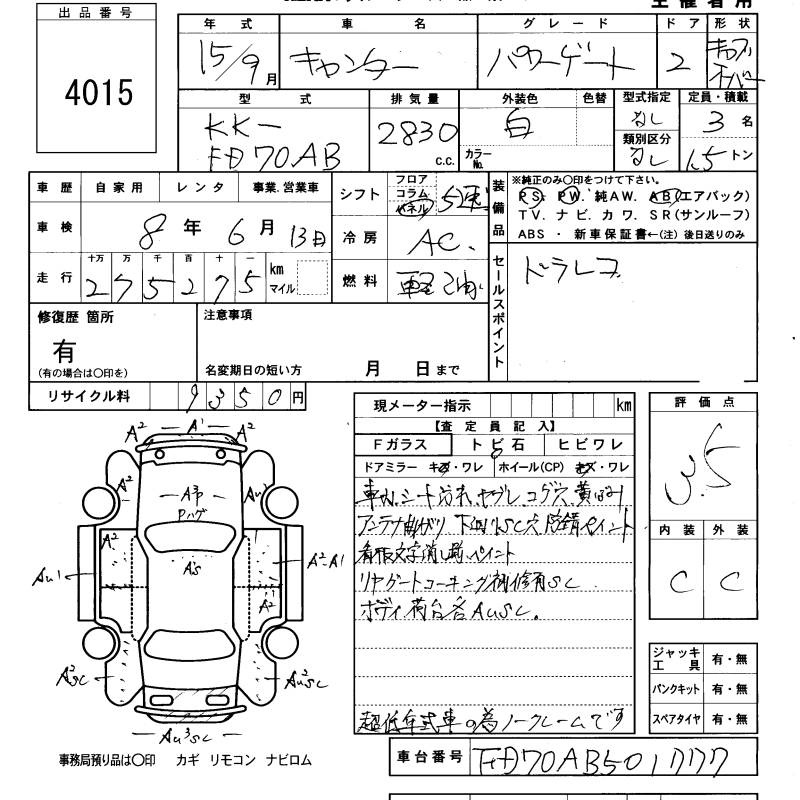 主催者用
出品番号
4015
年式 車名 グレード ドア 形状
15/9月 キャンター パワーゲート 2 キャブオーバー
型式 排気量 外装色 色替 型式指定 定員・積載
KK-
FD70AB 2830 c.c. 白 カラーNo. なし 3名
類別区分
なし 1.5トン
車歴 自家用 レンタ 事業.営業車
車検 8年 6月 13日
走行 十万 万 千 百 十 一
275275 km マイル
シフト フロア コラム パネル 5速
冷房 AC.
燃料 軽油
装備品 ※純正のみ〇印をつけて下さい。
PS. PW. 純AW. AB(エアバック)
TV. ナビ. カワ. SR(サンルーフ)
ABS ・ 新車保証書←(注) 後日送りのみ
セールスポイント
ドラレコ
修復歴 箇所
有
(有の場合は〇印を)
注意事項
名変期日の短い方 月 日まで
リサイクル料 9350円
現メーター指示 km
【査定員記入】
Fガラス トビ石 ヒビワレ
ドアミラー キズ・ワレ ホイール(CP) キズ・ワレ
車内.シート汚れ.ヤブレ.コゲ穴.黄ばみ
アンテナ曲がり 下廻りSC穴 防錆ペイント
看板文字消し跡.ペイント
リヤゲートコーキング補修有SC
ボディ.荷台各AuSC.
超低年式車の為ノークレームです
評価点
3.5
内装 外装
C C
ジャッキ 工具 有・無
パンクキット 有・無
スペアタイヤ 有・無
A² A¹ A²
A² Aゥ Au²
Pハゲ
A² A²-A¹
Au¹ A's
A²
A²SC Au²SC
Au³SC
事務局預り品は〇印 カギ リモコン ナビロム
車台番号 FD70AB501777